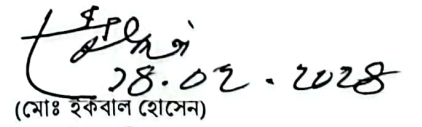 ২৪.০২.২০২৪
(মোঃ ইকবাল হোসেন)